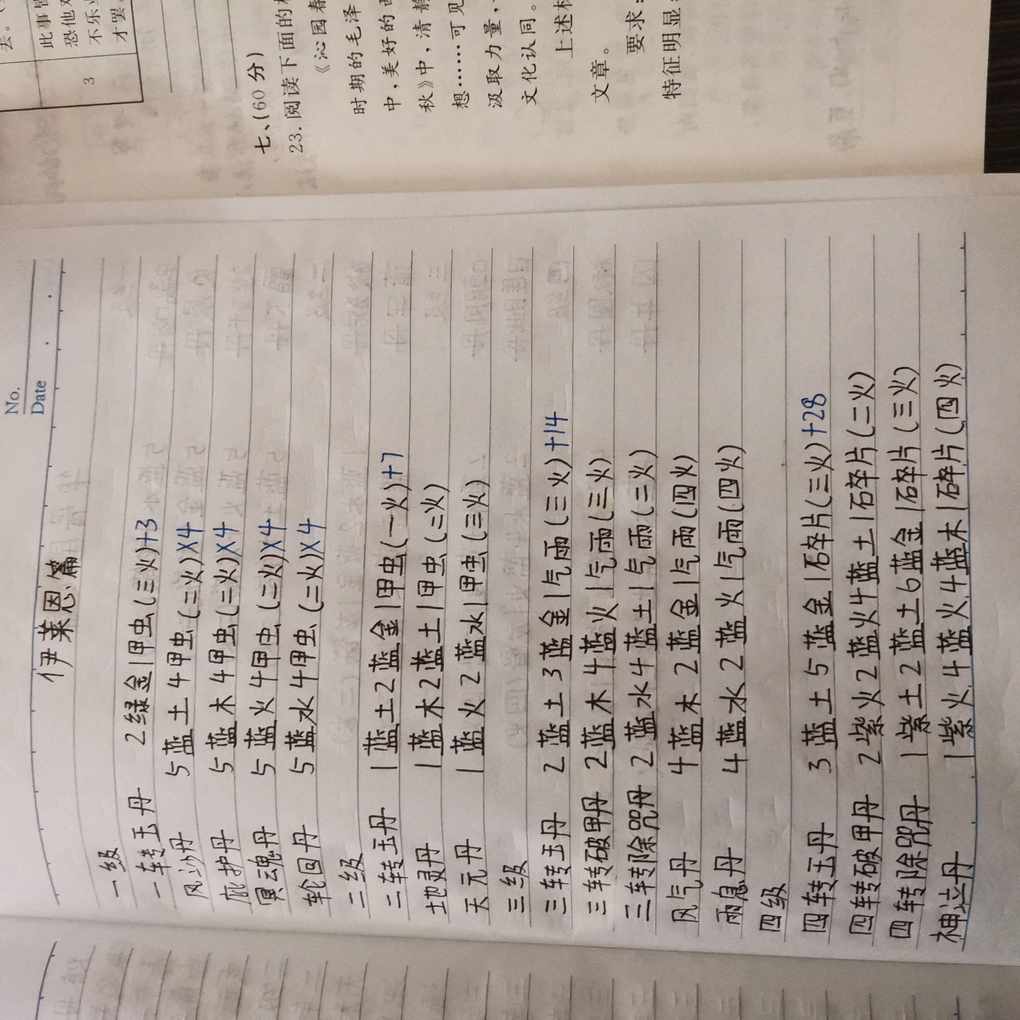 去。
此事皆
恐他对
不乐
才罢。
3
七、(60 分)
23. 阅读下面的材
《沁园春
时期的毛泽
中,美好的
秋》中,清静
想……可见
汲取力量,
文化认同。
上述材
要求:
文章。
特征明显;
No.
Date
伊莱恩篇
一级
一转玉丹 2绿金1甲虫(三火)+3
风沙丹 5蓝土4甲虫(三火)X4
庇护丹 5蓝木4甲虫(三火)X4
冥魂丹 5蓝火4甲虫(三火)X4
轮回丹 5蓝水4甲虫(三火)X4
二级
二转玉丹 1蓝土2蓝金1甲虫(一火)+7
地灵丹 1蓝木2蓝土1甲虫(三火)
天元丹 1蓝火2蓝水1甲虫(三火)
三级
三转玉丹 2蓝土3蓝金1气雨(三火)+14
三转破甲丹 2蓝木4蓝火1气雨(三火)
三转除咒丹 2蓝水4蓝土1气雨(三火)
风气丹 4蓝木2蓝金1气雨(四火)
雨息丹 4蓝水2蓝火1气雨(四火)
四级
四转玉丹 3蓝土5蓝金1碎片(三火)+28
四转破甲丹 2紫火2蓝火4蓝土1碎片(二火)
四转除咒丹 1紫土2蓝土6蓝金1碎片(三火)
神泣丹 1紫火4蓝火4蓝木1碎片(四火)